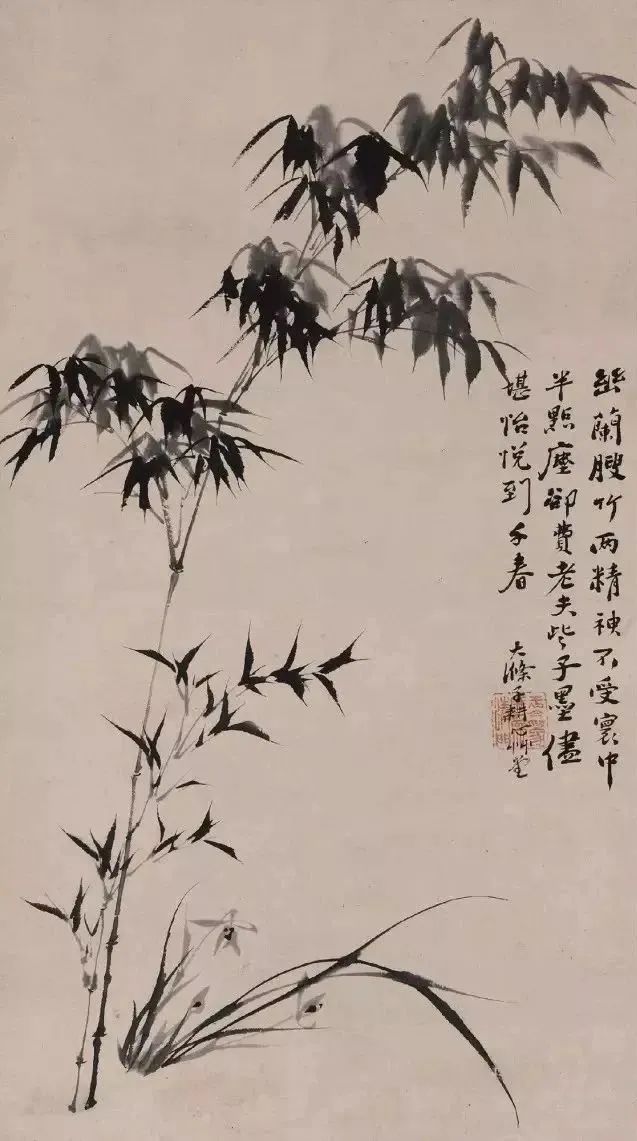 幽蘭瘦竹兩精神不受寰中
半點塵卻費老夫些子墨儘
堪怡悅到千春
大滌子耕心艸堂